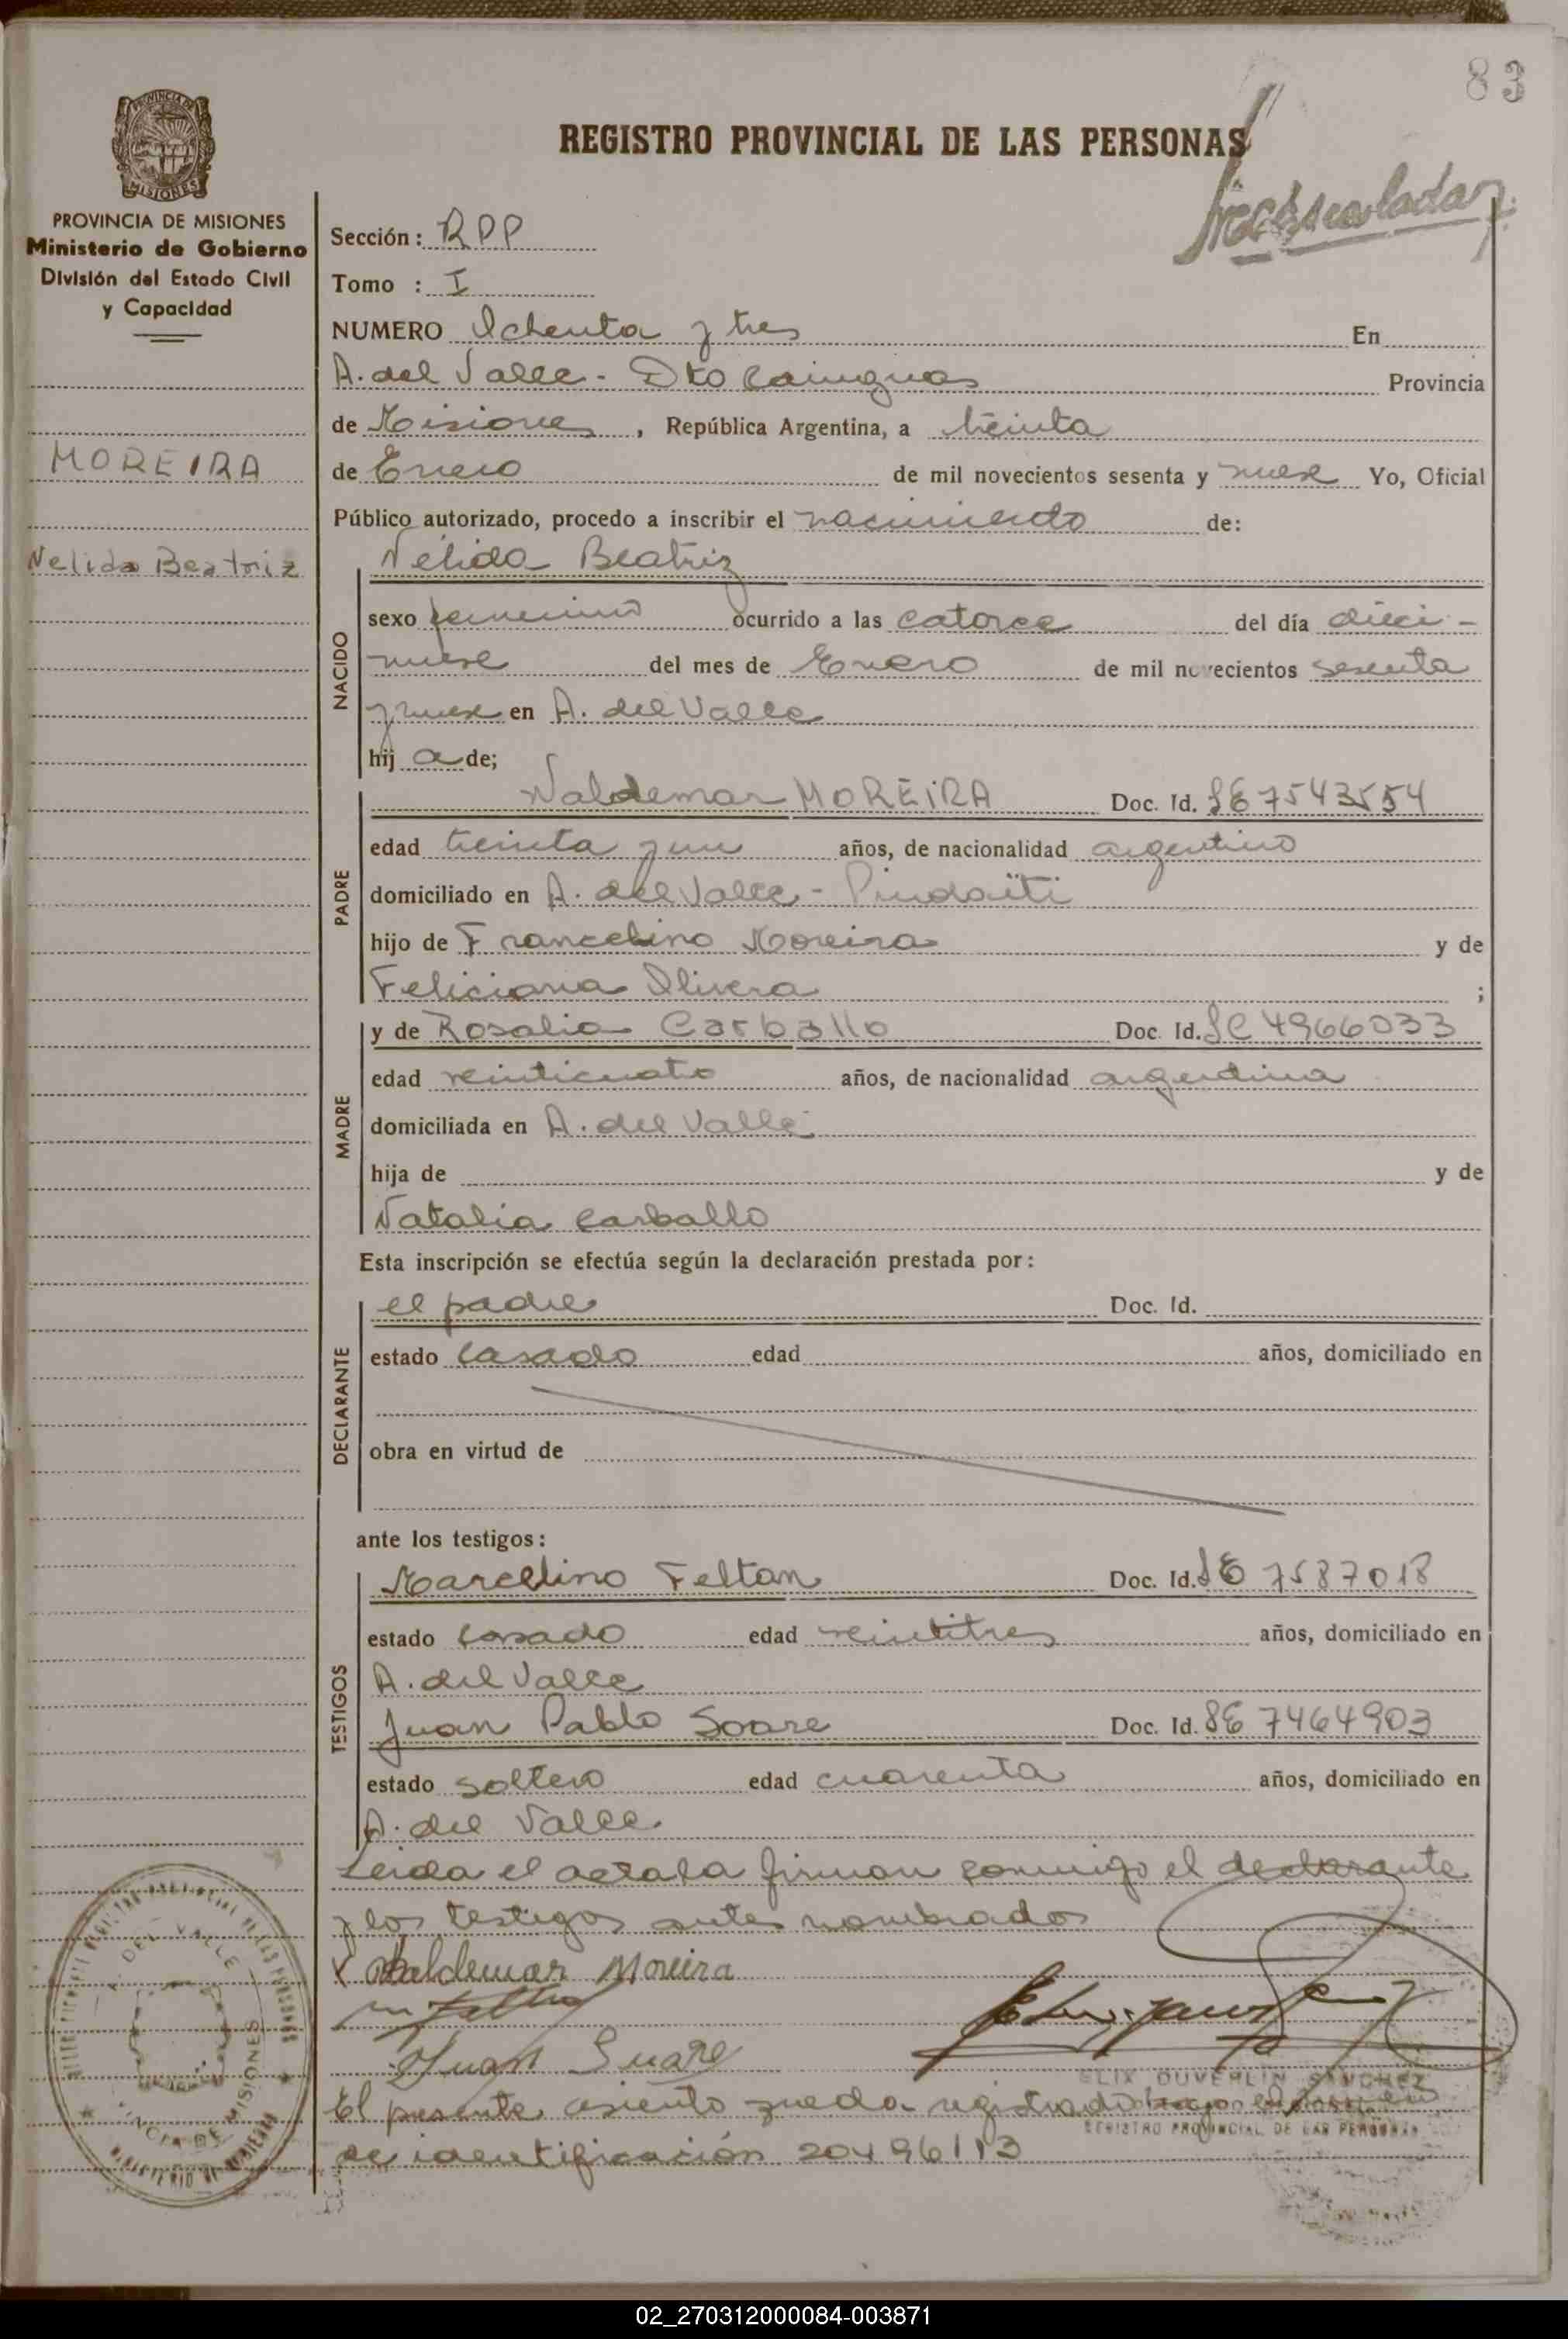 83
REGISTRO PROVINCIAL DE LAS PERSONAS
PROVINCIA DE MISIONES
Ministerio de Gobierno
División del Estado Civil
y Capacidad
MOREIRA
Nelida Beatriz
Sección: RPP
Tomo : I
NUMERO Ochenta y tres En
A. del Valle - Dto Cainguas Provincia
de Misiones, República Argentina, a treinta
de Enero de mil novecientos sesenta y nueve Yo, Oficial
Público autorizado, procedo a inscribir el nacimiento de:
Nélida Beatriz
NACIDO
sexo femenino ocurrido a las catorce del día dieci-
nueve del mes de Enero de mil novecientos sesenta
y nueve en A. del Valle
hij a de;
PADRE
Waldemar MOREIRA Doc. Id. LE 7543554
edad treinta y un años, de nacionalidad argentino
domiciliado en A. del Valle - Pindaiti
hijo de Francelino Moreira y de
Feliciana Olivera ;
MADRE
y de Rosalia Carballo Doc. Id. LC 4966033
edad veinticuatro años, de nacionalidad argentina
domiciliada en A. del Valle
hija de y de
Natalia Carballo
Esta inscripción se efectúa según la declaración prestada por:
DECLARANTE
el padre Doc. Id.
estado casado edad años, domiciliado en
obra en virtud de
ante los testigos:
TESTIGOS
Marcelino Feltan Doc. Id. LE 7587018
estado casado edad veintitres años, domiciliado en
A. del Valle
Juan Pablo Soare Doc. Id. LE 7464903
estado soltero edad cuarenta años, domiciliado en
A. del Valle
Leida el acta la firman conmigo el declarante
y los testigos antes nombrados
Waldemar Moreira
Juan Suare
DUVERLIN SANCHEZ
REGISTRO PROVINCIAL DE LAS PERSONAS
El presente asiento queda registrado bajo el
de identificación 20496113
A. DEL VALLE
MISIONES
02_270312000084-003871